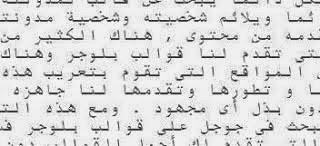 دائما يبحث عن قالب لمدونته
ئما ويلائم شخصيته وشخصية مدونت
قدمه من محتوى , هناك الكثير من
تى تقدم لنا قوالب بلوجر وهناك
المواقع التى تقوم بتعريب هذه
ا و تطورها وتقدمها لنا جاهزه
ون بذل أى مجهود . ومع هذه الت
بحث في جوجل على قوالب بلوجر ف